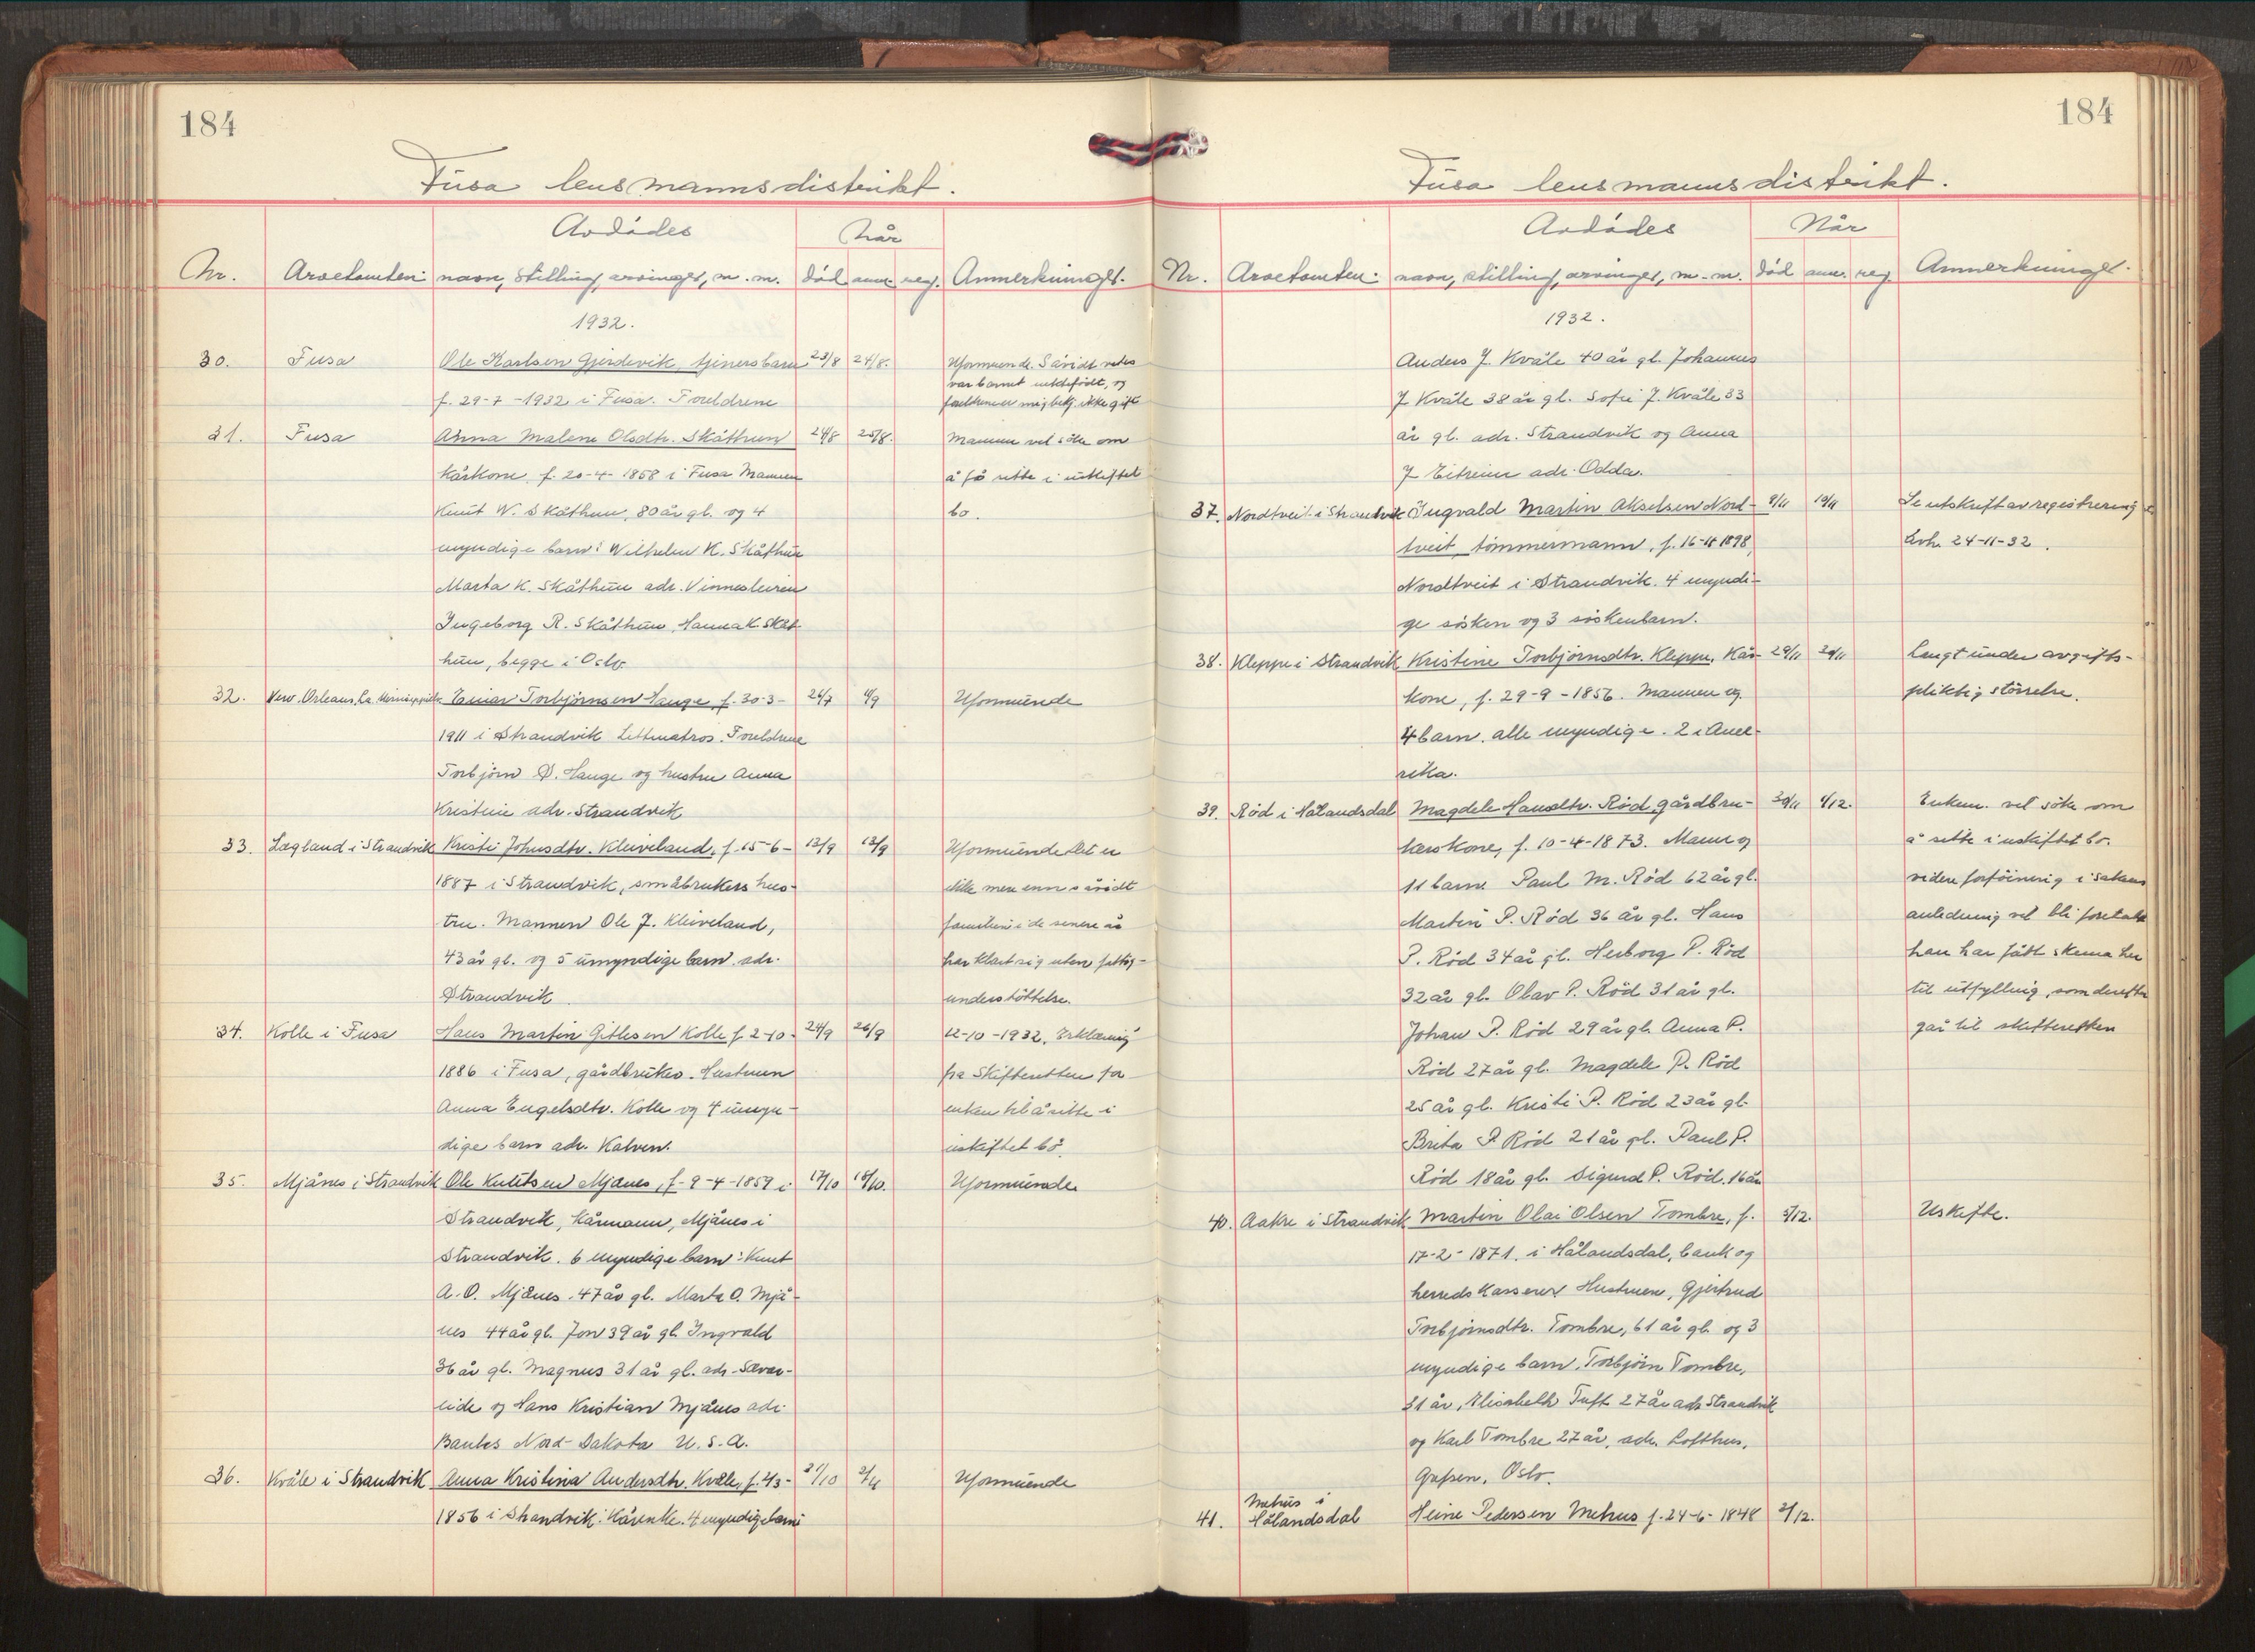 184
Fusa lensmannsdistrikt.
Avdødes
Når
Nr. Arvetomten: navn, stilling, arvinger, m. m. død anm. reg. Anmerkninger.
1932.
30. Fusa Ole Karlsen Gjerdevik, tjenersbarn 23/8 24/8. Uformuende. Såvidt vites
var barnet uektefødt, og
f. 29-7-1932 i Fusa. Foreldrene foreldrene er mig bekj. ikke gift
31. Fusa Anna Malene Olsdtr. Skåthun 24/8 25/8. Mannen vil söke om
kårkone, f. 20-4-1858 i Fusa Mannen å få sitte i uskiftet
Knut W. Skåthun, 80 år gl. og 4 bo.
myndige barn: Wilhelm K. Skåthun
Marta K. Skåthun adr. Vinnesleiren
Ingeborg R. Skåthun, Hanna K. Skåt-
hun, begge i Oslo.
32. New. Orleans, La. Einar Torbjörnsen Hauge, f. 30-3- 26/7 4/9 Uformuende
1911 i Strandvik Lettmatros. Foreldrene
Torbjörn D. Hauge og hustru Anna
Kristine adr. Strandvik
33. Lægland i Strandvik Kristi Johnsdtr. Kleiveland, f. 15-6- 13/9 13/9 Uformuende Det er
1887 i Strandvik, småbrukers hus- ikke mere enn såvidt
tru. Mannen Ole J. Kleiveland, familien i de senere år
43 år gl. og 5 umyndige barn adr. har klart sig uten fattig-
Strandvik understöttelse.
34. Kolle i Fusa Hans Martin Gitlesen Kolle f. 2-10- 24/9 26/9 12-10-1932, Erklæring
1886 i Fusa, gårdbruker. Hustruen fra Skifteretten for
Anna Engelsdtr. Kolle og 4 umyn- enken til å sitte i
dige barn adr. Kalven. uskiftet bo.
35. Mjånes i Strandvik Ole Knutsen Mjånes, f. 9-4-1859 i 17/10 18/10. Uformuende
Strandvik, kårmann, Mjånes i
Strandvik. 6 myndige barn: Knut
A. O. Mjånes. 47 år gl. Marta O. Mjå-
nes 44 år gl. Jon 39 år gl. Ingvald
36 år gl. Magnus 31 år gl. adr. Sævar-
eide og Hans Kristian Mjånes adr.
Bantes Nord-Dakota U. S. A.
36. Kvåle i Strandvik Anna Kristina Andersdtr. Kvåle, f. 4/3- 21/10 2/11 Uformuende
1856 i Strandvik. Kårenke. 4 myndige barn:
184
Fusa lensmannsdistrikt.
Avdødes
Når
Nr. Arvetomten: navn, stilling, arvinger, m. m. død anm. reg. Anmerkninger.
1932.
Anders J. Kvåle 40 år gl. Johannes
J. Kvåle 38 år gl. Sofie J. Kvåle 33
år gl. adr. Strandvik og Anna
J. Eitreim adr. Odda.
37. Nordtveit i Strandvik Ingvald Martin Akselsen Nord- 9/11 19/11 Se utskrift av registrering
tveit, tömmermann, f. 16-11 1898, 24-11-32.
Nordtveit i Strandvik. 4 myndi-
ge sösken og 3 söskenbarn.
38. Kleppe i Strandvik Kristine Torbjörnsdtr. Kleppe, Kår- 29/11 29/11 Langt under avgifts-
kone, f. 29-9-1856. Mannen og pliktig störrelse.
4 barn, alle myndige. 2 i Ame-
rika.
39. Röd i Hålandsdal Magdele Hansdtr. Röd gårdbru- 30/11 4/12. Enkem. vil söke om
kerskone, f. 10-4-1873. Mann og å sitte i uskiftet bo.
11 barn Paul M. Röd 62 år gl. videre forföining i sakens
Martin P. Röd 36 år gl. Hans anledning vil bli foretatt
P. Röd 34 år gl. Herborg P. Röd han har fått skema her
32 år gl. Olav P. Röd 31 år gl. til utfylling, som derefter
Johan P. Röd 29 år gl. Anna P. går til skifteretten
Röd 27 år gl. Magdele P. Röd
25 år gl. Kristi P. Röd 23 år gl.
Brita P. Röd 21 år gl. Paul P.
Röd 18 år gl. Sigurd P. Röd. 16 år
40. Aakre i Strandvik Martin Olai Olsen Tombre, f. 3/12. Uskifte.
17-2-1871. i Hålandsdal, bank og
herredskasserer Hustruen, Gjertrud
Torbjörnsdtr. Tombre, 61 år gl. og 3
myndige barn, Torbjörn Tombre,
31 år, Elisabeth Tuft 27 år adr. Strandvik
og Karl Tombre 27 år, adr. Lofthus,
Grefsen, Oslo.
41. Mehus i Hålandsdal Heine Pedersen Mehus f. 24-6-1848 21/12.